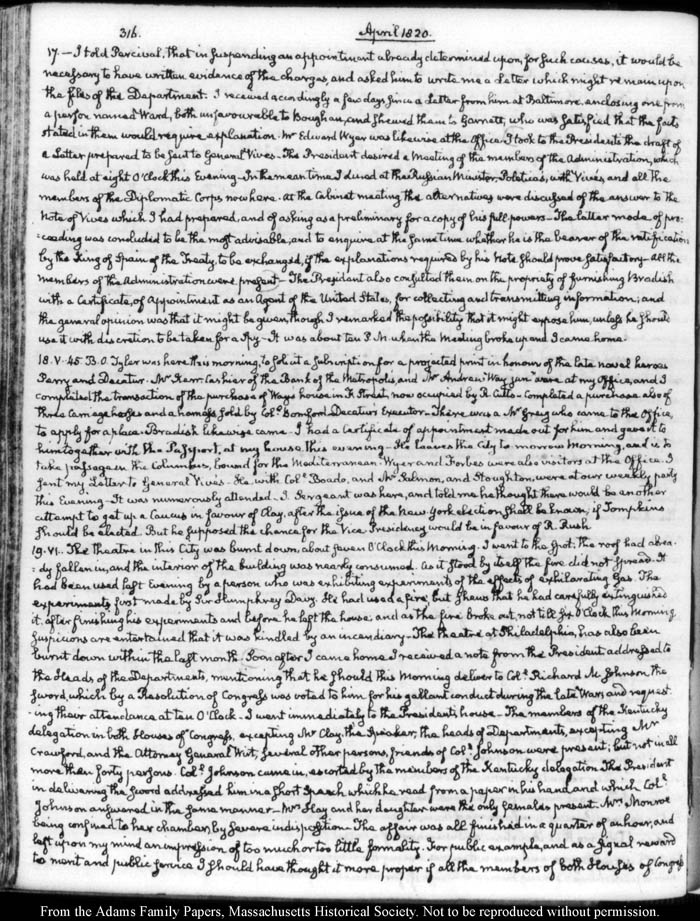 316.
April 1820.
17. — I told Percival, that in suspending an appointment already determined upon, for such causes, it would be
necessary to have written evidence of the charges, and asked him to write me a Letter which might remain upon
the files of the Department. I received accordingly a few days since a Letter from him at Baltimore, enclosing one from
a person named Ward, both unfavourable to Boughan, and shewed them to Garnett, who was satisfied that the facts
stated in them would require explanation. Mr Edward Wyer was likewise at the Office. I took to the President's the draft of
a Letter prepared to be sent to General Vives — The President desired a Meeting of the members of the Administration, which
was held at eight O'Clock this Evening — In the mean time I dined at the Russian Minister, Poletica's, with Vives, and all the
members of the Diplomatic Corps now here. At the Cabinet meeting the alternatives were discussed of the answer to the
Note of Vives which I had prepared, and of asking as a preliminary for a copy of his full powers — The latter mode of pro-
=ceeding was concluded to be the most advisable, and to enquire at the same time whether he is the bearer of the ratification
by the King of Spain of the Treaty, to be exchanged, if the explanations required by his Note should prove satisfactory — All the
members of the Administration were present — The President also consulted them on the propriety of furnishing Bradish
with a Certificate, of Appointment as an Agent of the United States, for collecting and transmitting information; and
the general opinion was that it might be given, though I remarked the possibility that it might expose him, unless he should
use it with discretion to be taken for a Spy — It was about ten P.M. when the Meeting broke up and I came home.
18. V. 45 B. O. Tyler was here this morning, to solicit a subscription for a projected print in honour of the late naval heroes
Perry and Decatur. Mr Kerr Cashier of the Bank of the Metropolis, and Mr Andrew Way junr were at my Office, and I
completed the transaction of the purchase of Way's house in F. Street, now occupied by R. Cutts — Completed a purchase also of
three Carriage horses and a harness, sold by Coll. Bomford, Decatur's Executor — There was a Mr Greig who came to the Office,
to apply for a place. Bradish likewise came — I had a Certificate of appointment made out for him, and gave it to
him together with the Passport, at my house, this evening — He leaves the City to-morrow Morning, and is to
take passage in the Columbus, bound for the Mediterranean. Wyer and Forbes were also visitors at the Office. I
sent my Letter to General Vives — He, with Coll. Boado, and Mr Salmon, and Stoughton, were at our weekly party
this Evening — It was numerously attended — J. Sergeant was here, and told me he thought there would be another
attempt to get up a Caucus in favour of Clay, after the issue of the New-York election shall be known, if Tompkins
should be elected. But he supposed the chance for the Vice Presidency would be in favour of R. Rush
19. VI. The Theatre in this City was burnt down, about seven O'Clock this Morning. I went to the spot; the roof had alrea-
=dy fallen in, and the interior of the building was nearly consumed. As it stood by itself the fire did not spread. It
had been used last Evening by a person who was exhibiting experiments of the effects of exhilarating Gas. The
experiments first made by Sir Humphrey Davy. He had used a fire, but shews that he had carefully extinguished
it, after finishing his experiments and before he left the house, and as the fire broke out, not till six O'Clock this Morning,
suspicions are entertained that it was kindled by an incendiary — The theatre at Philadelphia, has also been
burnt down within the last month. Soon after I came home I received a note from the President addressed to
the Heads of the Departments, mentioning that he should this Morning deliver to Coll. Richard M. Johnson, the
sword, which by a Resolution of Congress was voted to him for his gallant conduct during the late War, and request-
=ing their attendance at ten O'Clock — I went immediately to the President's house — The members of the Kentucky
delegation in both Houses of Congress, excepting Mr Clay the Speaker, the heads of Departments, excepting Mr
Crawford, and the Attorney General Wirt, several other persons, friends of Coll. Johnson were present; but not in all
more than forty persons. Coll. Johnson came in, escorted by the members of the Kentucky delegation. The President
in delivering the sword addressed him in a short Speech which he read from a paper in his hand, and which Coll.
Johnson answered in the same manner — Mrs Hay and her daughter were the only females present. Mrs Monroe
being confined to her chamber, by severe indisposition — The affair was all finished in a quarter of an hour, and
left upon my mind an impression of too much or too little formality. For public example, and as a signal reward
to merit and public service I should have thought it more proper if all the members of both Houses of Congress
From the Adams Family Papers, Massachusetts Historical Society. Not to be reproduced without permission.